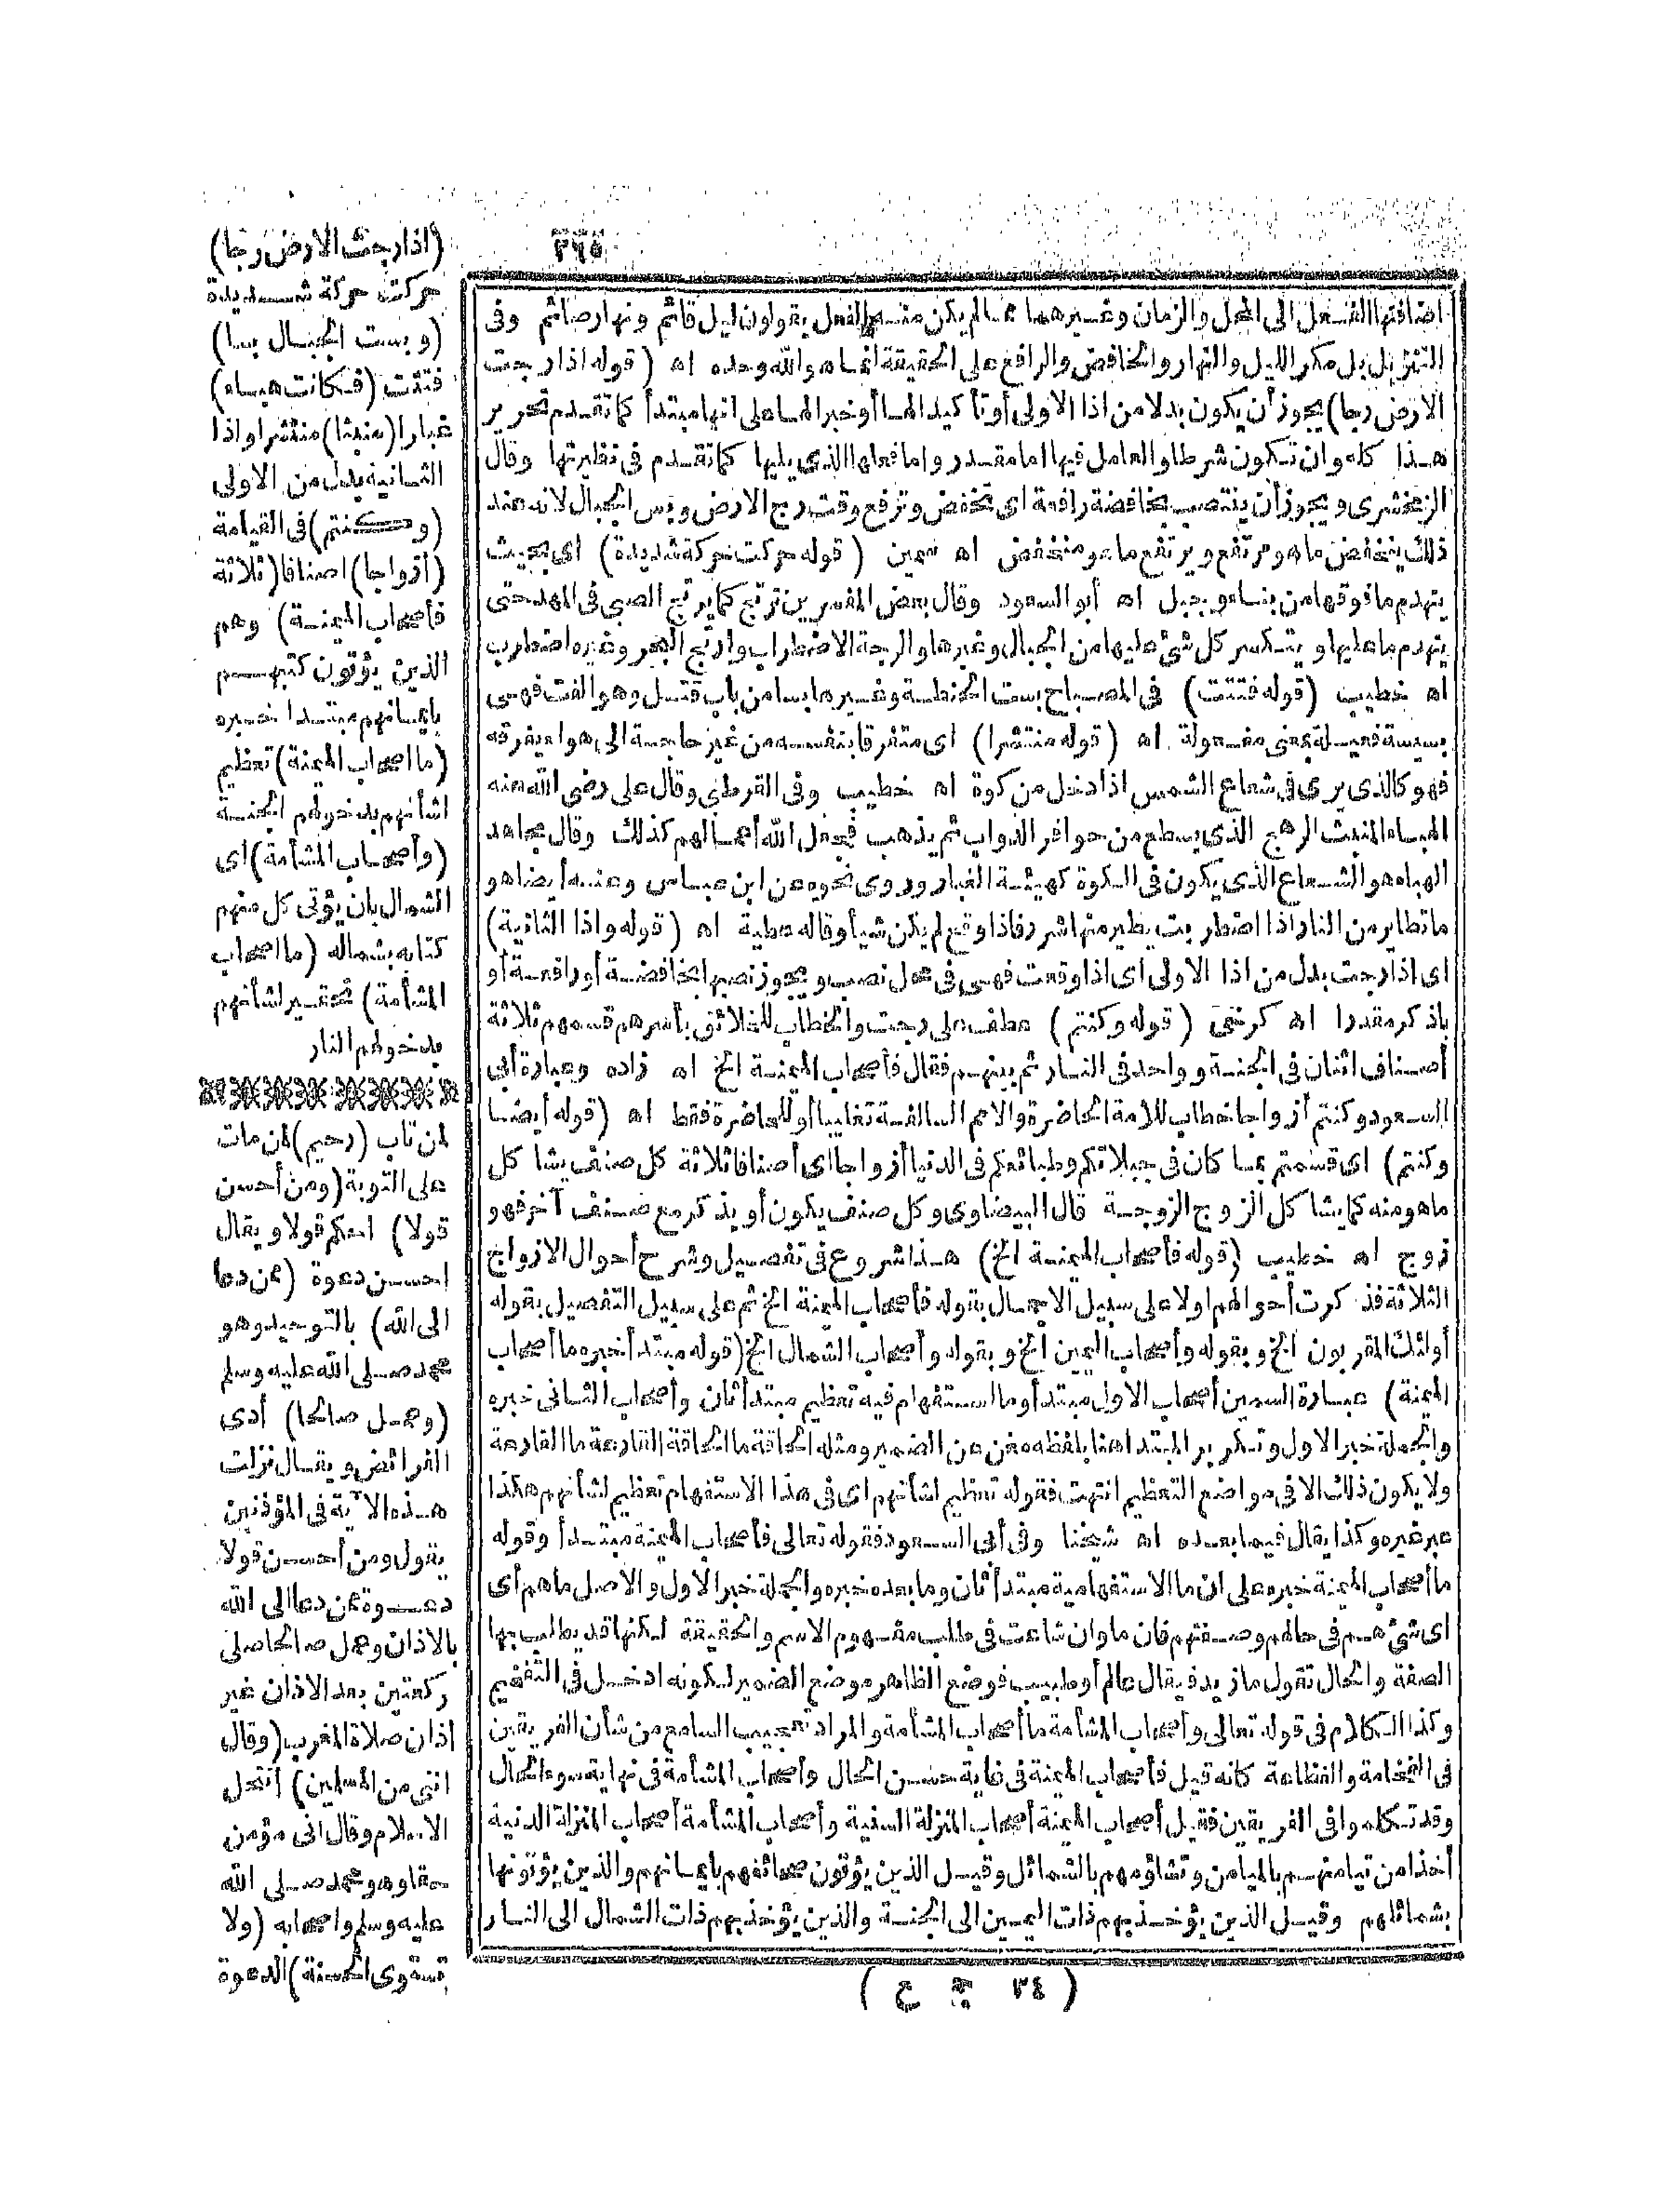 ٢٦٥
اضافتها الفعل الى المحل والزمان وغيرهما مما لم يكن منه الفعل يقولون ليل قائم ونهار صائم وفى
التنزيل بل مكر الليل والنهار والخافض والرافع على الحقيقة انما هو الله وحده اه (قوله اذا رجت
الارض رجا) يجوز أن يكون بدلا من اذا الاولى أو تأكيدا لها أو خبرا لها على انها مبتدأ كما تقدم تحرير
هذا كله وان تكون شرطا والعامل فيها اما مقدر واما فعلها الذى يليها كما تقدم فى نظيرتها وقال
الزمخشرى ويجوز أن ينتصب بخافضة رافعة اى تخفض وترفع وقت رج الارض وبس الجبال لانه عند
ذلك ينخفض ما هو مرتفع ويرتفع ما هو منخفض اه سمين (قوله حركت حركة شديدة) اى بحيث
ينهدم ما فوقها من بناء وجبل اه أبو السعود وقال بعض المفسرين ترتج كما يرتج الصبى فى المهد حتى
ينهدم ما عليها ويتكسر كل شئ عليها من الجبال وغيرها والرجة الاضطراب وارتج البحر وغيره اضطرب
اه خطيب (قوله فتتت) فى المصباح بست الحنطة وغيرها بسا من باب قتل وهو الفت فهى
بسيسة فعيلة بمعنى مفعولة اه (قوله منتشرا) اى متفرقا بنفسه من غير حاجة الى هواء يفرقه
فهو كالذى يرى فى شعاع الشمس اذا دخل من كوة اه خطيب وفى القرطبى وقال على رضى الله عنه
الهباء المنبث الرهج الذى يسطع من حوافر الدواب ثم يذهب فجعل الله أعمالهم كذلك وقال مجاهد
الهباء هو الشعاع الذى يكون فى الكوة كهيئة الغبار وروى نحوه عن ابن عباس وعنه أيضا هو
ما تطاير من النار اذا اضطربت يطير منها شرر فاذا وقع لم يكن شيأ وقاله عطية اه (قوله واذا الثانية)
اى اذا رجت بدل من اذا الاولى أى اذا وقعت فهى فى محل نصب ويجوز نصبها بخافضة أو رافعة أو
باذكر مقدرا اه كرخى (قوله وكنتم) عطف على رجت والخطاب للخلائق بأسرهم قسمهم ثلاثة
أصناف اثنان فى الجنة وواحد فى النار ثم بينهم فقال فأصحاب الميمنة الخ اه زاده وعبارة أبى
السعود وكنتم أزواجا خطاب للامة الحاضرة والامم السالفة تغليبا أو للحاضرة فقط اه (قوله أيضا
وكنتم) اى قسمتم بما كان فى جبلاتكم وطبائعكم فى الدنيا أزواجا أى أصنافا ثلاثة كل صنف يشاكل
ما هو منه كما يشاكل الزوج الزوجة قال البيضاوى وكل صنف يكون أو يذكر مع صنف آخر فهو
زوج اه خطيب (قوله فأصحاب الميمنة الخ) هذا شروع فى تفصيل وشرح أحوال الازواج
الثلاثة فذكرت أحوالهم اولا على سبيل الاجمال بقوله فأصحاب الميمنة الخ ثم على سبيل التفصيل بقوله
أولئك المقربون الخ وبقوله وأصحاب اليمين الخ وبقوله وأصحاب الشمال الخ (قوله مبتدأ خبره ما أصحاب
الميمنة) عبارة السمين أصحاب الاول مبتدأ وما استفهام فيه تعظيم مبتدأ ثان وأصحاب الثانى خبره
والجملة خبر الاول وتكرير المبتدا هنا بلفظه مغن عن الضمير ومثله الحاقة ما الحاقة القارعة ما القارعة
ولا يكون ذلك الا فى مواضع التعظيم انتهت فقوله تعظيم لشأنهم اى فى هذا الاستفهام تعظيم لشأنهم هكذا
عبر غيره وكذا يقال فيما بعده اه شيخنا وفى أبى السعود فقوله تعالى فأصحاب الميمنة مبتدأ وقوله
ما أصحاب الميمنة خبره على ان ما الاستفهامية مبتدأ ثان وما بعده خبره والجملة خبر الاول والاصل ما هم أى
اى شئ هم فى حالهم وصفتهم فان ما وان شاعت فى طلب مفهوم الاسم والحقيقة لكنها قد يطلب بها
الصفة والحال تقول ما زيد فيقال عالم أو طبيب فوضع الظاهر موضع الضمير لكونه ادخل فى التفخيم
وكذا الكلام فى قوله تعالى وأصحاب المشأمة ما أصحاب المشأمة والمراد تعجيب السامع من شأن الفريقين
فى الفخامة والفظاعة كانه قيل فأصحاب الميمنة فى غاية حسن الحال وأصحاب المشأمة فى نهاية سوء الحال
وقد تكلموا فى الفريقين فقيل أصحاب الميمنة أصحاب المنزلة السنية وأصحاب المشأمة أصحاب المنزلة الدنية
أخذا من تيامنهم بالميامن وتشاؤمهم بالشمائل وقيل الذين يؤتون صحائفهم بايمانهم والذين يؤتونها
بشمائلهم وقيل الذين يؤخذ بهم ذات اليمين الى الجنة والذين يؤخذ بهم ذات الشمال الى النار
(٣٤ ج ع)
(اذا رجت الارض رجا)
حركت حركة شديدة
(وبست الجبال بسا)
فتتت (فكانت هباء)
غبارا (منبثا) منتشرا واذا
الثانية بدل من الاولى
(وكنتم) فى القيامة
(أزواجا) اصنافا (ثلاثة
فأصحاب الميمنة) وهم
الذين يؤتون كتبهم
بايمانهم مبتدا خبره
(ما اصحاب الميمنة) تعظيم
لشأنهم بدخولهم الجنة
(وأصحاب المشأمة) اى
الشمال بان يؤتى كل منهم
كتابه بشماله (ما اصحاب
المشأمة) تحقير لشأنهم
بدخولهم النار
لمن تاب (رحيم) لمن مات
على التوبة (ومن أحسن
قولا) احكم قولا ويقال
احسن دعوة (ممن دعا
الى الله) بالتوحيد وهو
محمد صلى الله عليه وسلم
(وعمل صالحا) أدى
الفرائض ويقال نزلت
هذه الآية فى المؤذنين
يقول ومن أحسن قولا
دعوة ممن دعا الى الله
بالاذان وعمل صالحا صلى
ركعتين بعد الاذان غير
اذان صلاة المغرب (وقال
اننى من المسلمين) انتحل
الاسلام وقال انى مؤمن
حقا وهو محمد صلى الله
عليه وسلم واصحابه (ولا
تستوى الحسنة) الدعوة